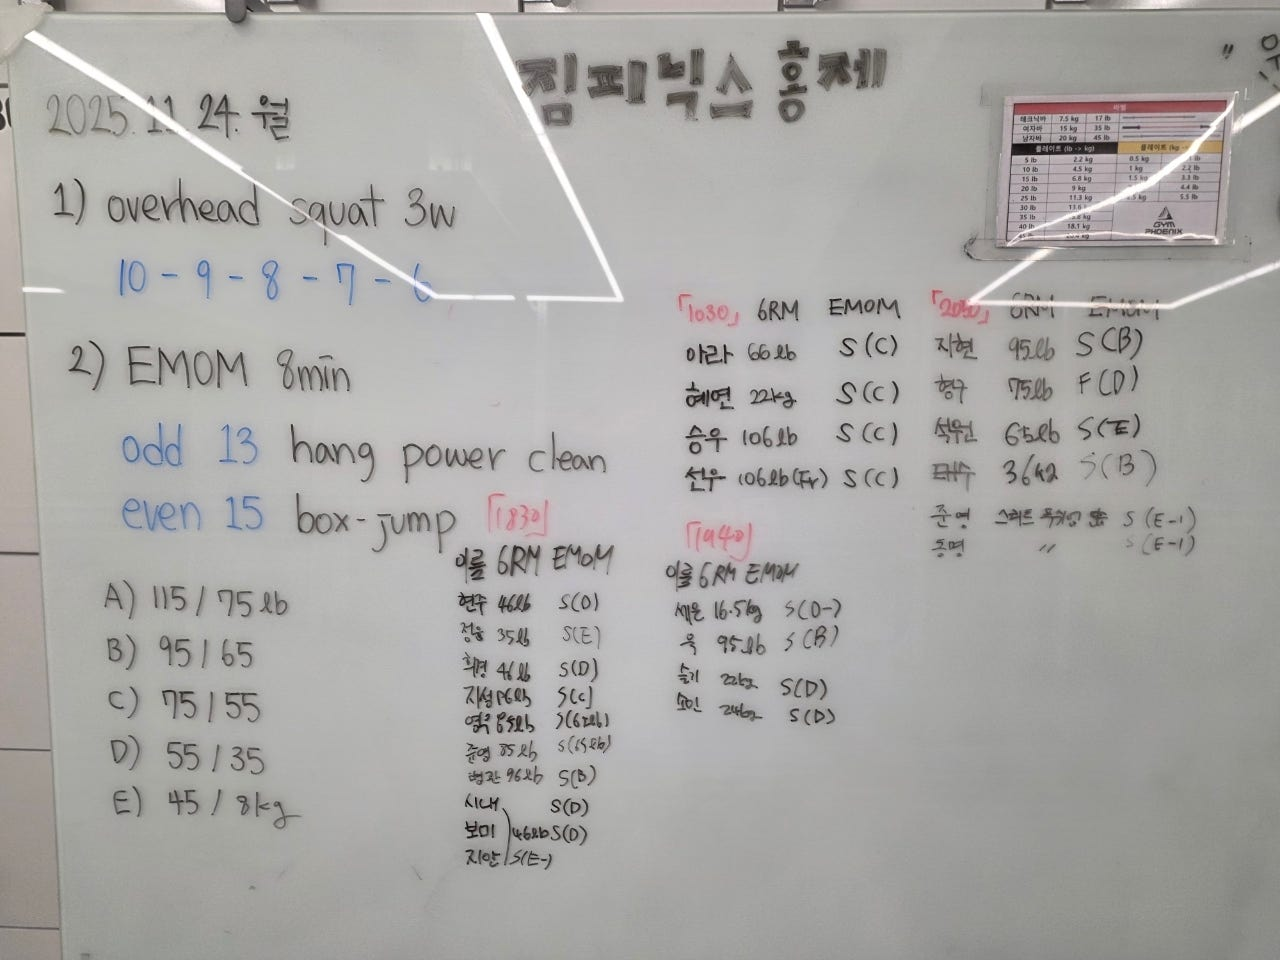 짐피닉스홍제
2025.11.24.월
1) overhead squat 3w
10 - 9 - 8 - 7 - 6
2) EMOM 8min
odd 13 hang power clean
even 15 box-jump
A) 115 / 75lb
B) 95 / 65
C) 75 / 55
D) 55 / 35
E) 45 / 8kg
「1830」
이름 6RM EMOM
현수 46lb S(D)
35lb S(E)
희경 46lb S(D)
지성 S(C)
S(65lb)
준영 85lb S(65lb)
96lb S(B)
시내 S(D)
보미 46lb S(D)
지안 S(E-)
「1030」 6RM EMOM
아라 66lb S(C)
혜연 22kg S(C)
승우 106lb S(C)
선우 106lb(Fr) S(C)
「1940」
이름 6RM EMOM
세운 16.5kg S(D-)
욱 95lb S(B)
슬기 22kg S(D)
소민 24kg S(D)
「2030」 6RM EMOM
지현 95lb S(B)
형구 75lb F(D)
석원 65lb S(E)
36kg S(B)
준영 S(E-1)
동명 〃 S(E-1)
바벨
테크닉바 7.5 kg 17 lb
여자바 15 kg 35 lb
남자바 20 kg 45 lb
플레이트 (lb -> kg) 플레이트 (kg ->
5 lb 2.2 kg 0.5 kg
10 lb 4.5 kg 1 kg 2.2 lb
15 lb 6.8 kg 1.5 kg 3.3 lb
20 lb 9 kg 4.4 lb
25 lb 11.3 kg 5.5 lb
30 lb 13.6 kg
35 lb
40 lb 18.1 kg
GYM PHOENIX